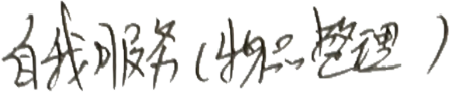 自我服务(物品整理)